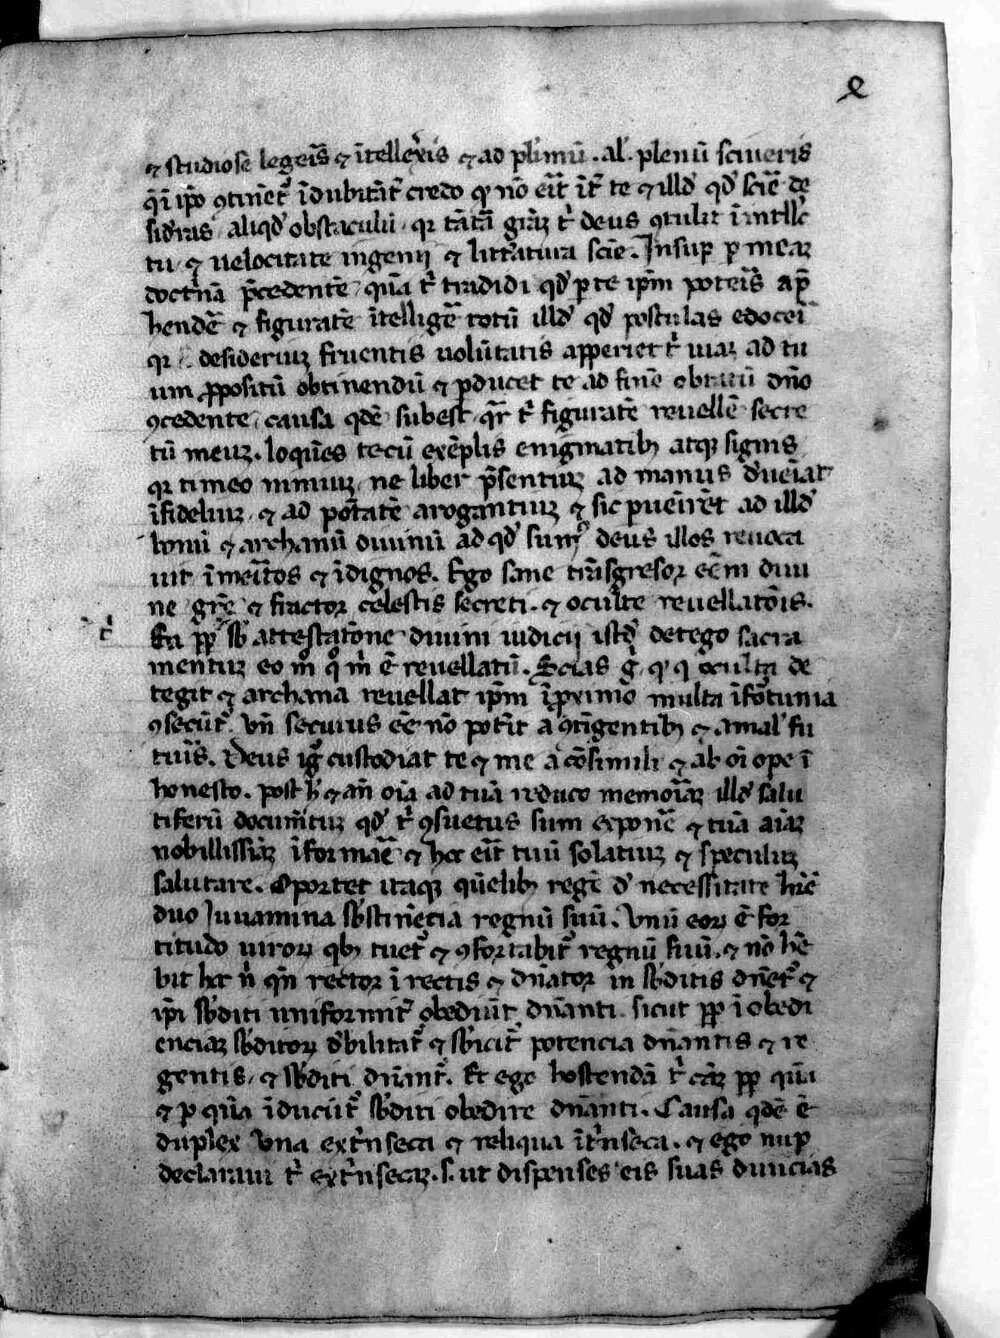 ꝯ
⁊ studiose legeı̄s ⁊ ı̄tellex̄is ⁊ ad plı̄mū . al̄ . plenū sciueris
q̄ ī ip̄o ꝯtinēt᷑ īdubitāt᷑ credo qꝫ nō eı̄t īt᷑ te ⁊ illd̄ qd̄ scı̄e de
sid̄ras aliqd̄ obstaculū qꝛ tātā grāꝫ t̄ deus ꝯtulit ī intll̄c
tu ⁊ uelocitate ingenij ⁊ litt̄atura scīe . Insuꝑ ꝑ meaꝫ
doct̄nā p̄cedentē quā t̄ tradidi qd̄ ꝑ te ip̄m poteı̄s ap̄
hendē ⁊ figuratē ītelligē totū illd̄ qd̄ postulas edoceı̄
qꝛ desideriuꝫ feruentis uolūtatis apperiet t̄ uiaꝫ ad tu
um ꝓpositū obtinendū ⁊ ꝑducet te ad finē obtatū dn̄o
ꝯcedente causa qdē subest qr̄ t̄ figuratē reuellē secre
tū meuꝫ . loquēs tecū exēplis enigmatibꝫ atqꝫ signis
qꝛ timeo nimiuꝫ ne liber p̄sentiuꝫ ad manus d̄ueı̄at
īfideliuꝫ ⁊ ad potātē arogantiuꝫ ⁊ sic ꝑueı̄rēt ad illd̄
bonū ⁊ archanū diuinū ad qd̄ sum̄ deus illos reuoca
uit īmeı̄tos ⁊ īdignos . Ego sane tn̄sgresor eēm diui
ne gr̄e ⁊ fractor celestis secreti . ⁊ oculte reuellatōis .
t̄
Ea pp̄ sb̄ attestatōne diuini iudicij istd̄ detego sacra
mentuꝫ eo m̊ q̊ m̄ ē reuellatū . Scias g̊ qꝫ q̄ oculta de
tegit ⁊ archana reuellat ip̄m īproximo multa īfortunia
ꝯsecūt᷑ . vn̄ securus eē nō pot̄it a ꝯtīgentibꝫ ⁊ a mal̄ fu
tuı̄s . Deus ig̊ custodiat te ⁊ me a cōsimili ⁊ ab oı̄ ope ī
honesto . post h̄ ⁊ an̄ oı̄a ad tuā reduco memoı̄aꝫ illd̄ salu
tiferū documētuꝫ qd̄ t̄ ꝯsuetus sum exponē ⁊ tuā aı̄aꝫ
nobillissiāꝫ īformāē ⁊ hoc eı̄t tuū solatiuꝫ ⁊ speculuꝫ
salutare . Oportet itaqꝫ quēlibꝫ regē d̄ necessitate hr̄e
duo Iuuamina sb̄stinētia regnū suū . Vnū eoꝝ ē for
titudo uiroꝝ qbꝫ tuet᷑ ⁊ ꝯfortabit᷑ regnū suū . ⁊ nō hē
bit hoc n̄ qn̄ rector ī rectis ⁊ dn̄ator in sb̄ditis dn̄et᷑ ⁊
ip̄i sb̄diti uniformit᷑ obediūt dn̄anti sicut pp̄ īobedi
enciaꝫ sb̄ditoꝝ d̄bilitat᷑ ⁊ sb̄icit᷑ potencia dn̄antis ⁊ re
gentis , ⁊ sb̄diti dn̄ant᷑ . Et ego hostendā t̄ cāꝫ pp̄ quā
⁊ ꝑ quā īducūt᷑ sb̄diti obedire dn̄anti . Causa qdē ē
duplex vna ext̄nseca ⁊ reliqua īt̄nseca . ⁊ ego nuꝑ
declaraui t̄ ext̄nsecaꝫ . s . ut dispenses eis suas diuicias